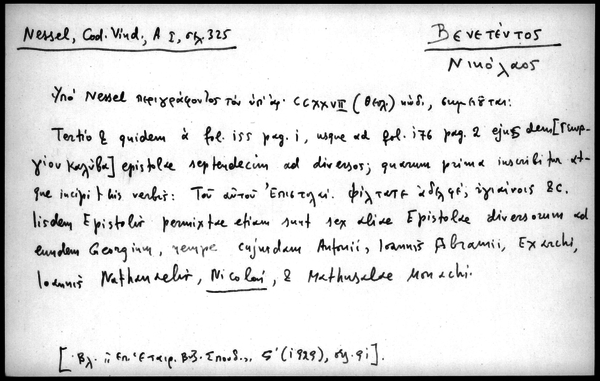 Nessel, Cod. Vind., A Σ, σελ. 325
Βενετέντος
Νικόλαος
Ὑπό Nessel περιγράφοντος τόν ὑπ' ἀρ. CCXXVII (θεολ.) κώδ., σημειοῦται:
Tertio & quidem à fol. 155 pag. 1, usque ad fol. 176 pag. 2 ejusdem [Γεωρ-
γίου Καλύβα] epistolae septendecim ad diversos; quarum prima inscribitur at-
que incipit his verbis: Τοῦ αὐτοῦ Ἐπιστολαί. φίλτατε ἀδελφέ, ὑγιαίνοις &c.
Iisdem Epistolis permixtae etiam sunt sex aliae Epistolae diversorum ad
eundem Georgium, nempe cujusdam Antonii, Ioannis Abramii, Exarchi,
Ioannis Nathanaelis, Nicolai, & Mathusalae Monachi.
[Βλ. Ἐπ. Ἑταιρ. Βυζ. Σπουδ., ς' (1929), σελ. 91].